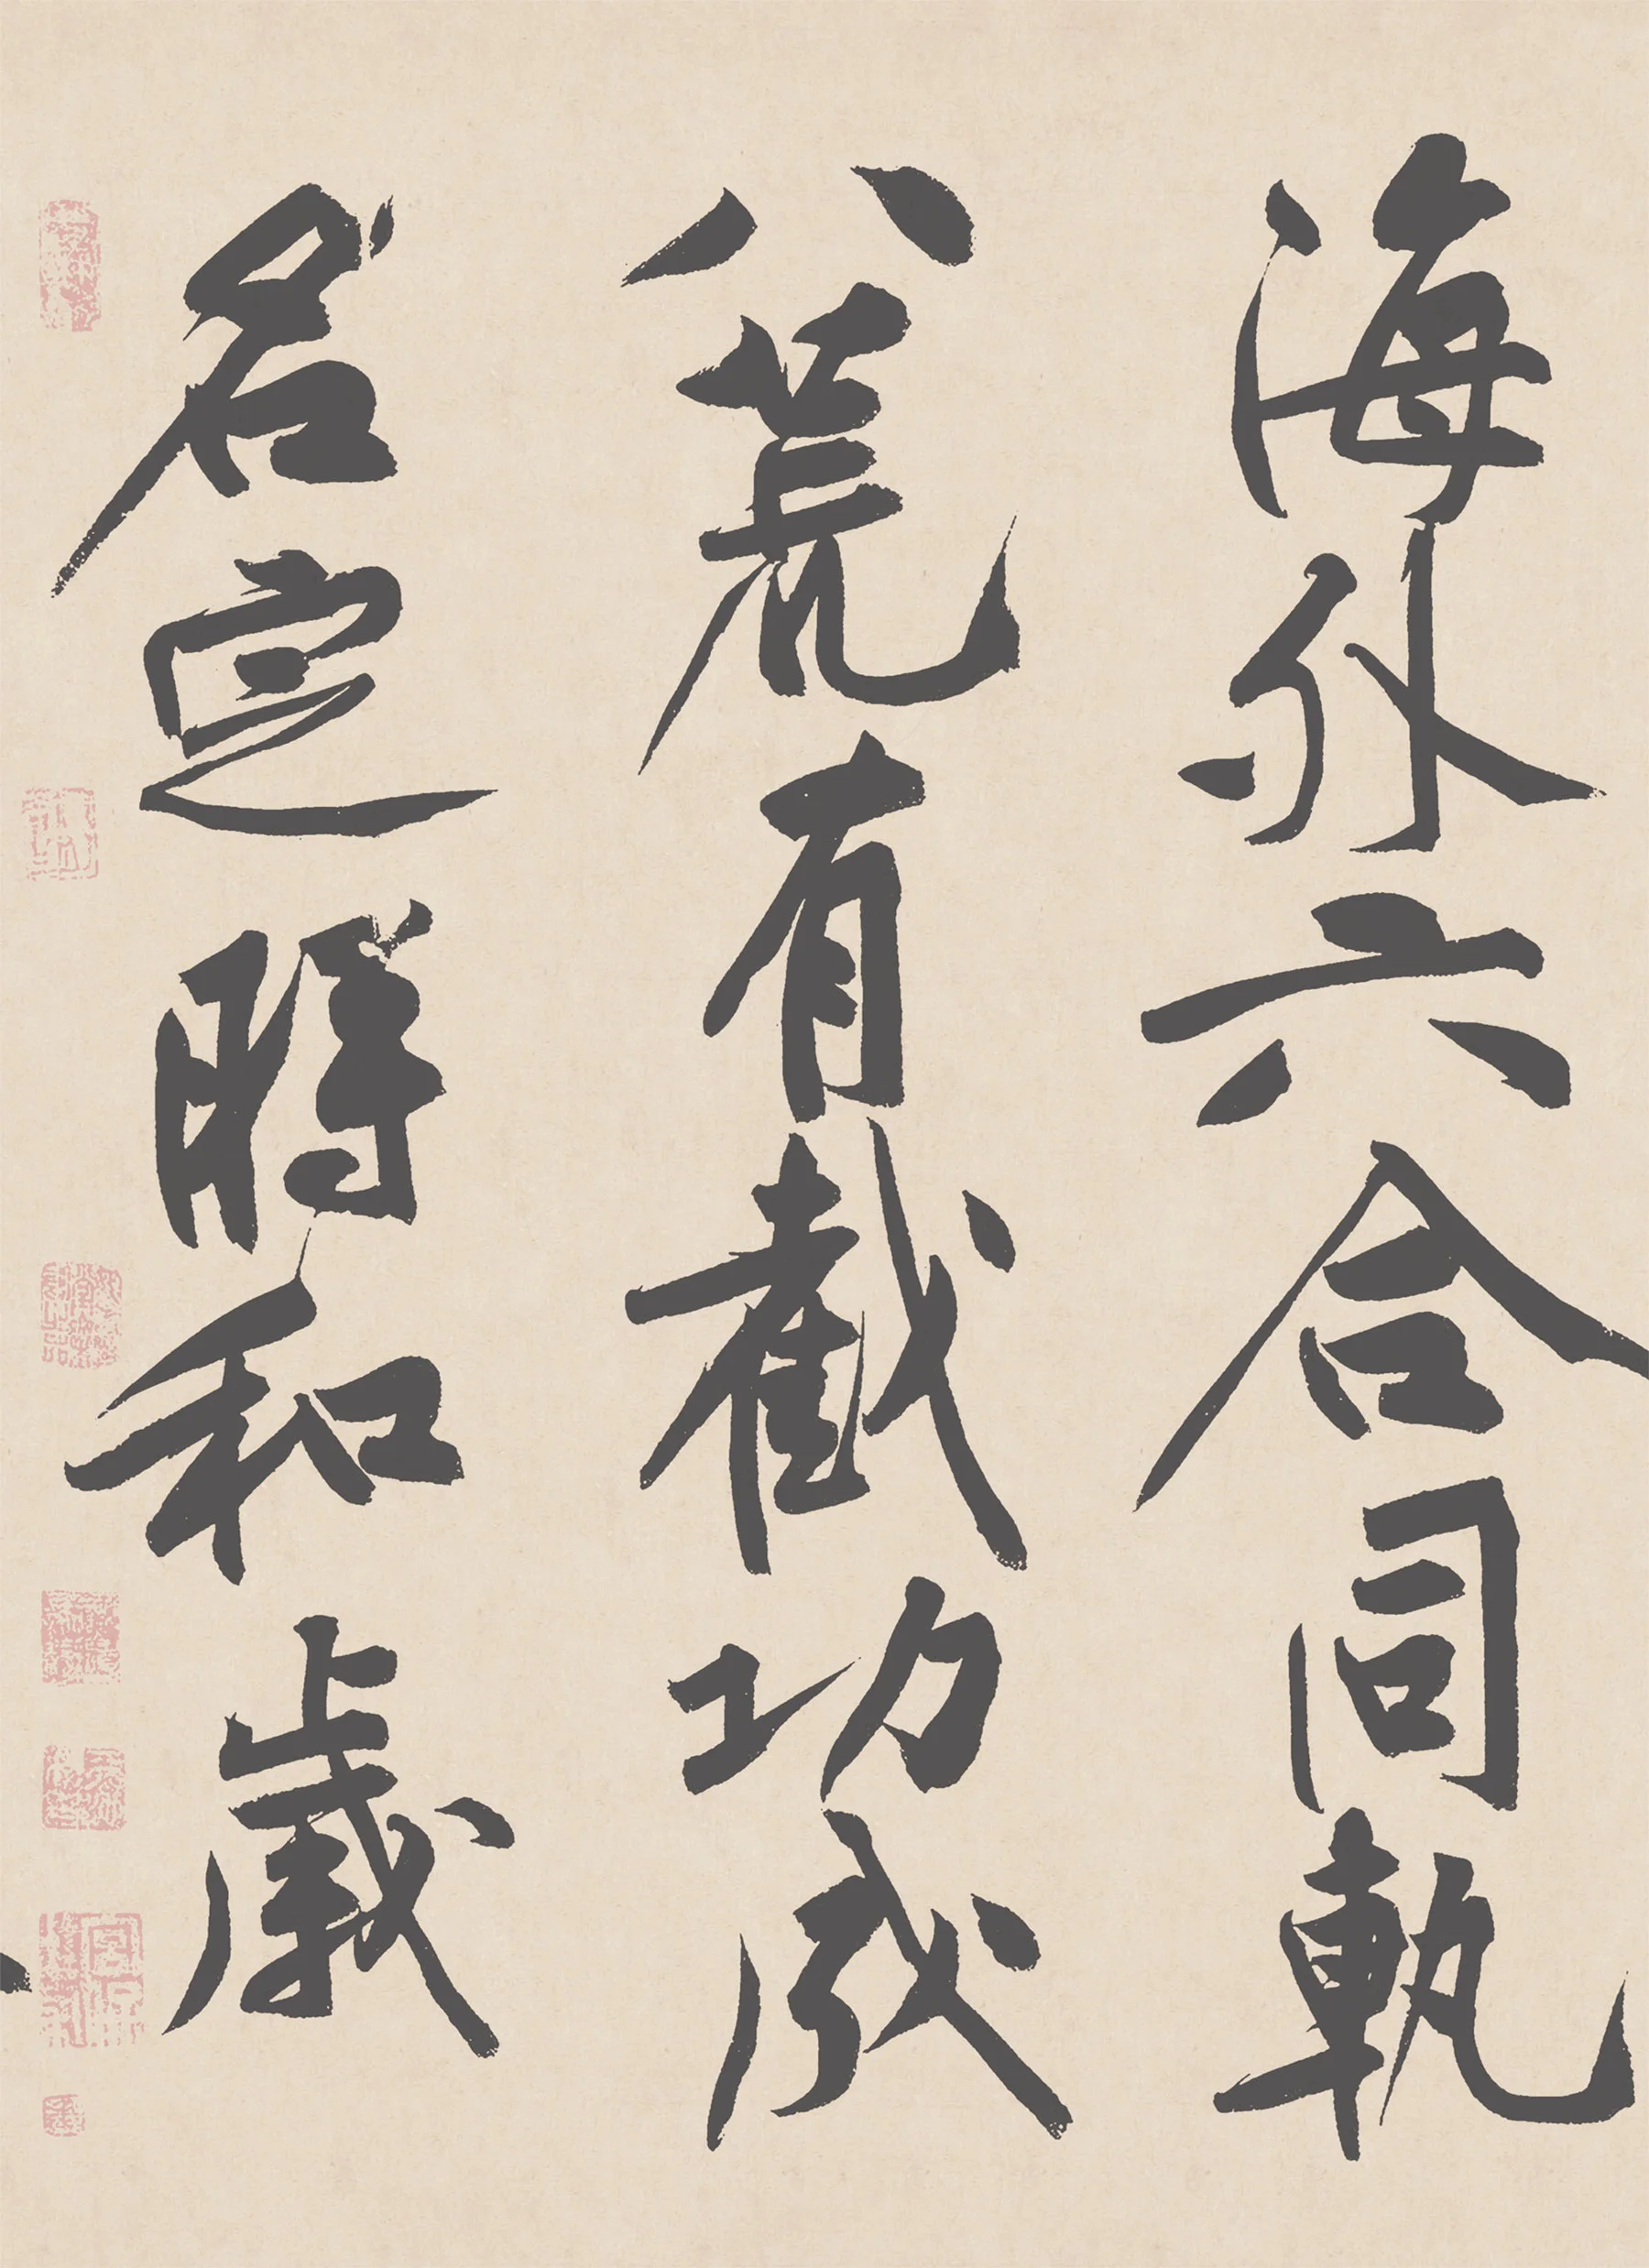 海外六合同軌
八荒有截功成
名定時和歲